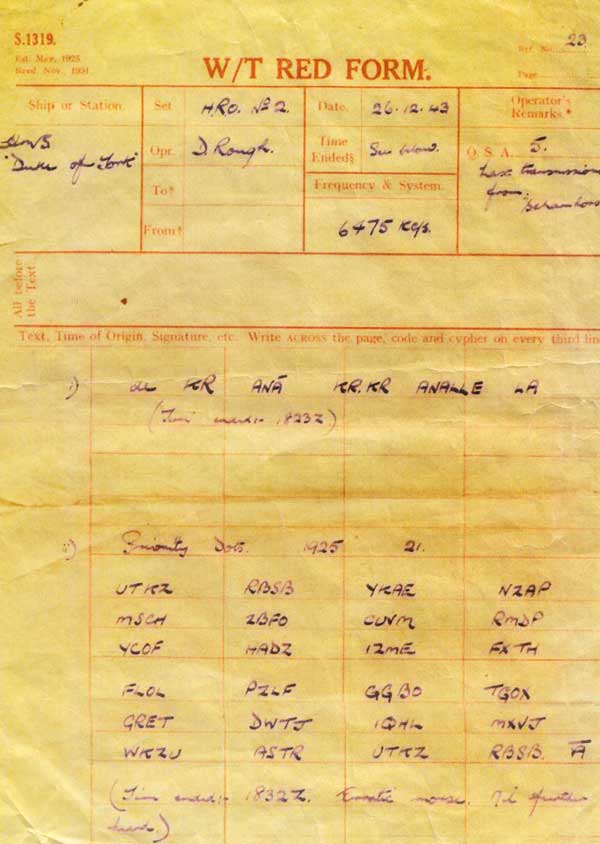 S.1319.
Est. May, 1925.
Revd. Nov. 1934.
Ref. No. 23.
Page
W/T RED FORM.
Ship or Station
HMS
"Duke of York"
Set H.R.O. No 2.
Opr. D. Rough.
To†
From†
Date. 26.12.43
Time Ended§ See below.
Frequency & System.
6475 Kc/s.
Operator's
Remarks.*
Q. S. A. 5.
Last transmission
from
All before
the Text
Text, Time of Origin, Signature, etc. Write ACROSS the page, code and cypher on every third lin
i) de KR ANĀ KR.KR ANALLE LA
(Time ended:- 1823Z)
ii) Priority Dots. 1925 21.
UTKZ RBSB YKAE NZAP
MSCH ZBFO CUVM RMDP
YCOF HADZ IZME FXTH
FLOL PZLF GGBO TGOX
GRET DWTJ IQHL MXVJ
WKZU ASTR UTKZ RBSB. Ā
(Time ended:- 1832Z. Erratic morse. Nil further
heard.)